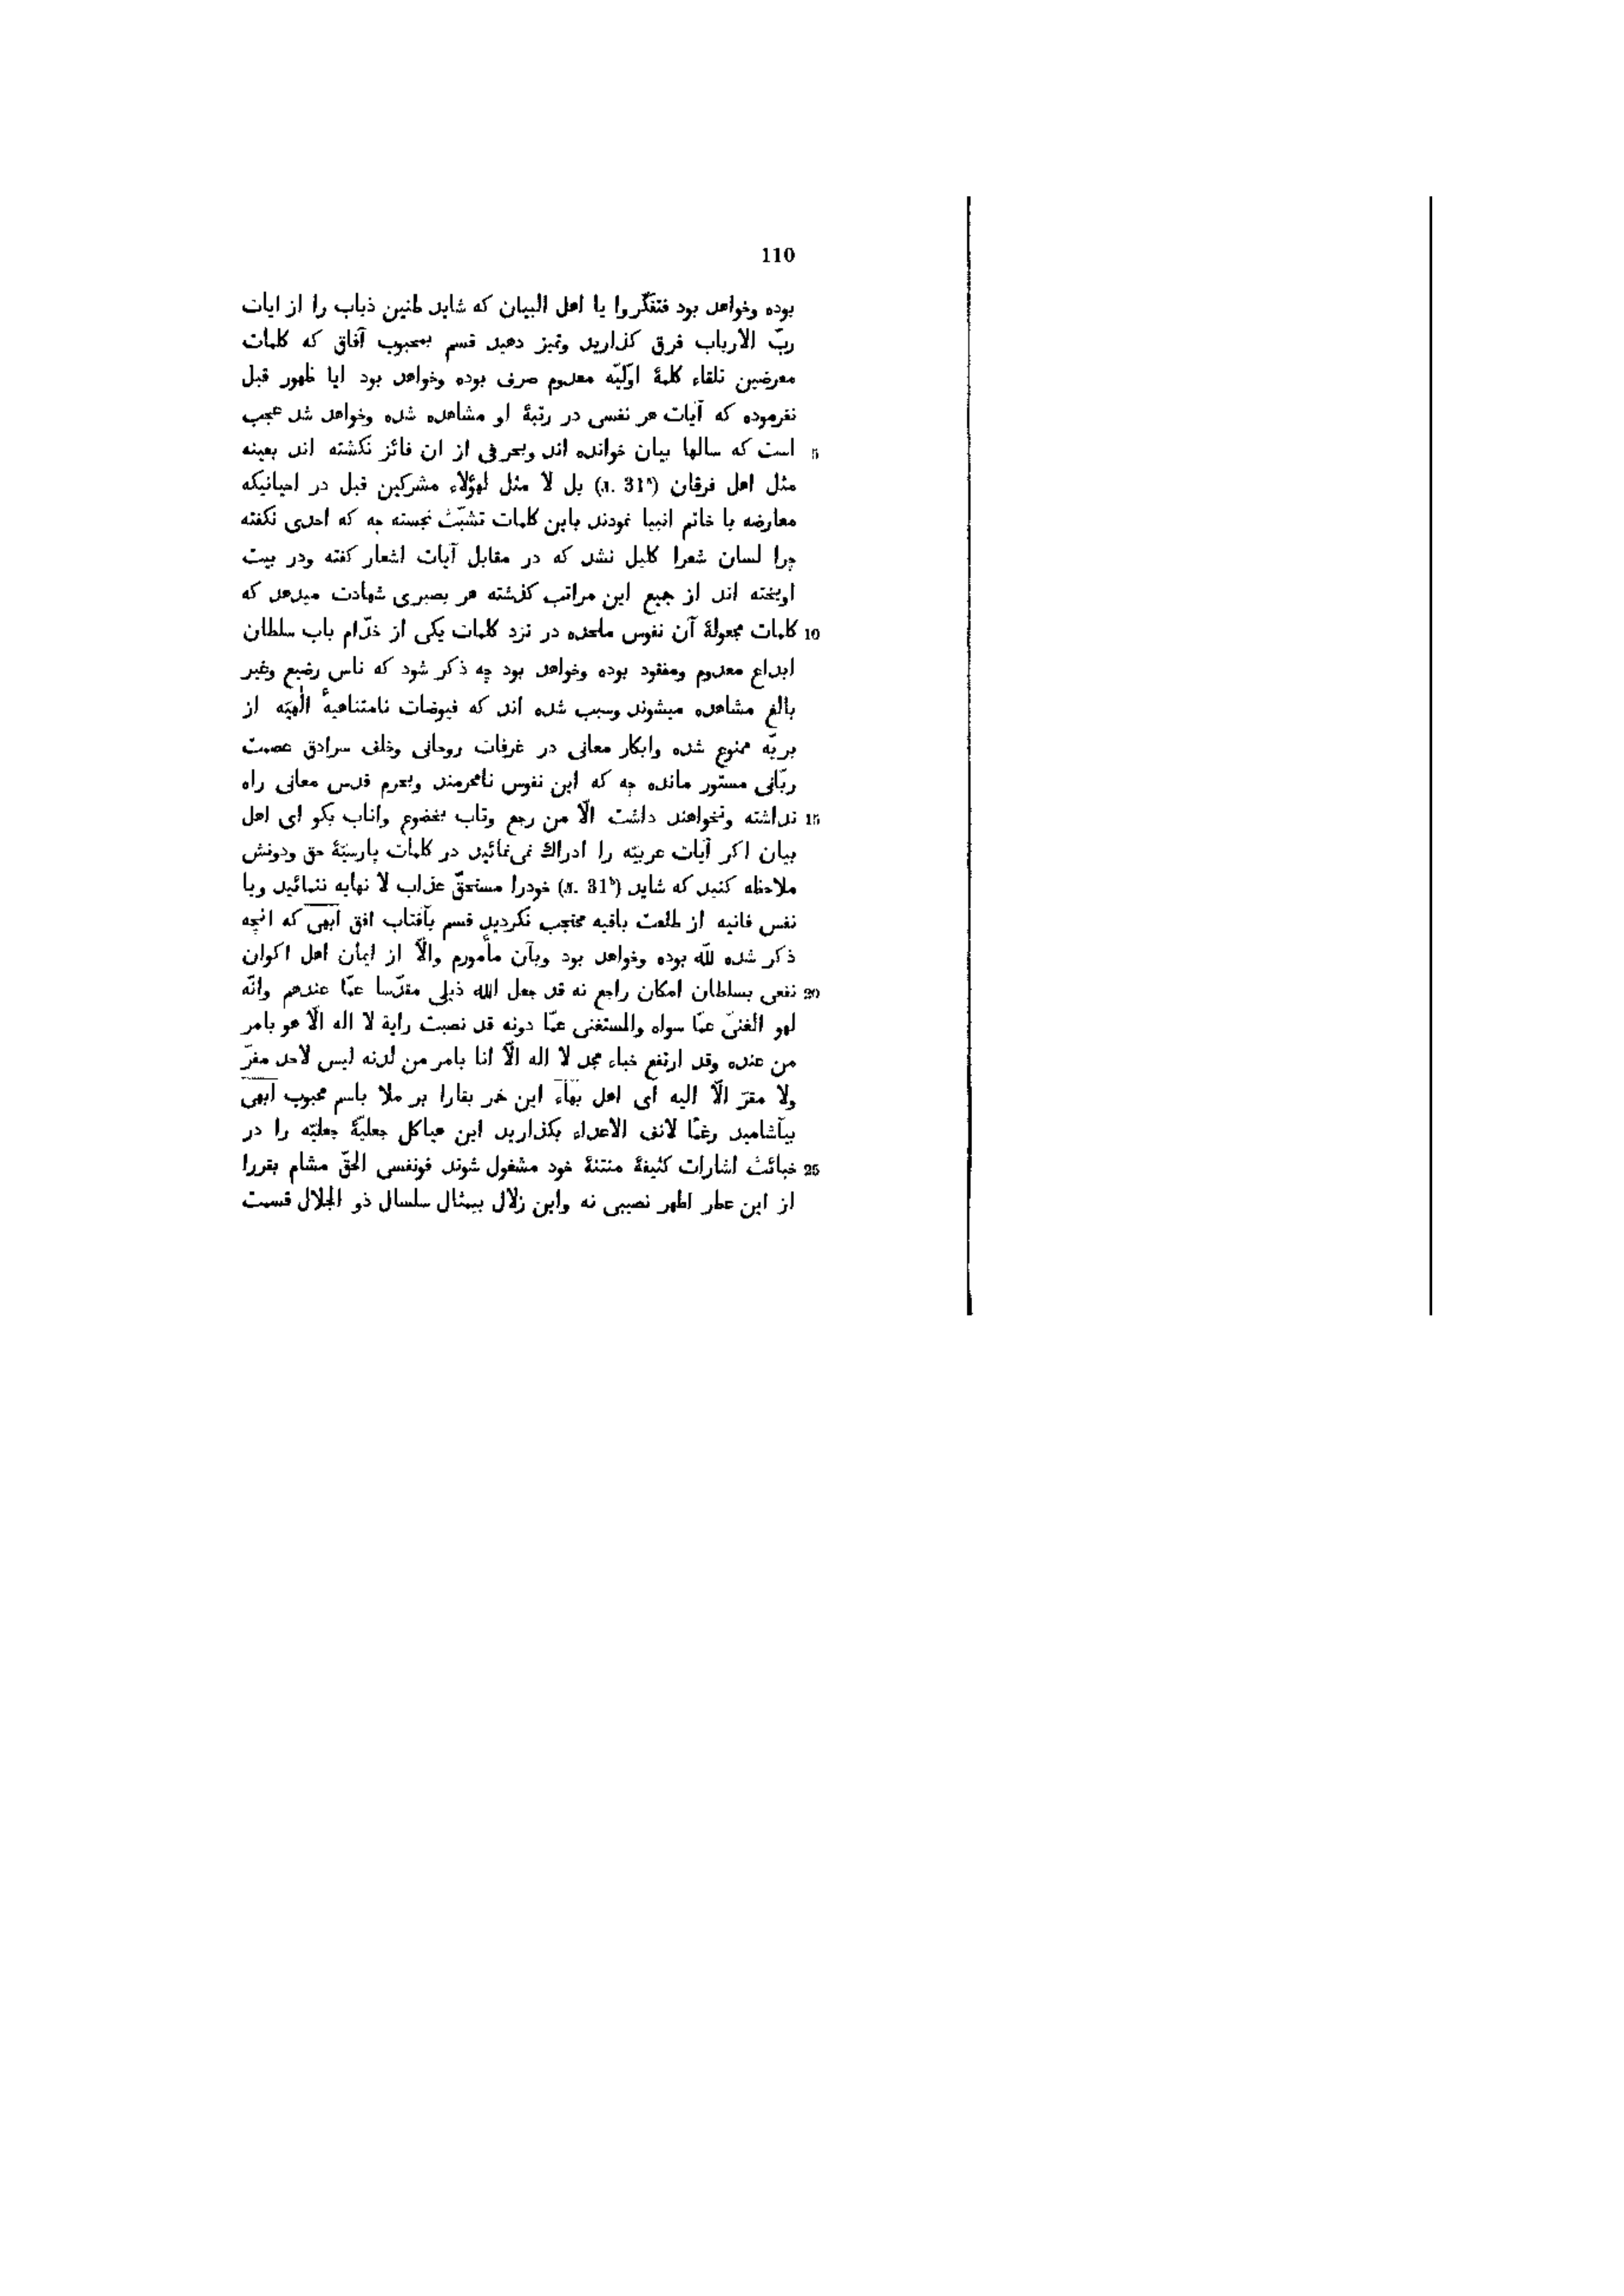 110
بوده وخواهد بود فتفکّروا یا اهل البیان که شاید طنین ذباب را از ایات
ربّ الارباب فرق کذارید وتمیز دهید قسم بمحبوب آفاق که کلمات
معرضین تلقاء کلمهٔ اوّلیّه معدوم صرف بوده وخواهد بود ایا ظهور قبل
نفرموده که آیات هر نفسی در رتبهٔ او مشاهده شده وخواهد شد عجب
5 است که سالها بیان خوانده اند وبحرفی از ان فائز نکشته اند بعینه
مثل اهل فرقان (л. 31ᵃ) بل لا مثل لهؤلاء مشرکین قبل در احیانیکه
معارضه با خاتم انبیا نمودند باین کلمات تشبّث نجسته چه که احدی نکفته
چرا لسان شعرا کلیل نشد که در مقابل آیات اشعار کفته ودر بیت
اویخته اند از جمیع این مراتب کذشته هر بصیری شهادت میدهد که
10 کلمات مجعولهٔ آن نفوس ملحده در نزد کلمات یکی از خدّام باب سلطان
ابداع معدوم ومفقود بوده وخواهد بود چه ذکر شود که ناس رضیع وغیر
بالغ مشاهده میشوند وسبب شده اند که فیوضات نامتناهیهٔ الٰهیّه از
بریّه ممنوع شده وابکار معانی در غرفات روحانی وخلف سرادق عصمت
ربّانی مستور مانده چه که این نفوس نامحرمند وبحرم قدس معانی راه
15 نداشته ونخواهند داشت الّا من رجع وتاب بخضوع واناب بکو ای اهل
بیان اکر آیات عربیّه را ادراك نمی‌نمائید در کلمات پارسیّهٔ حق ودونش
ملاحظه کنید که شاید (л. 31ᵇ) خودرا مستحقّ عذاب لا نهایه ننمائید وبا
نفس فانیه از طلعت باقیه محتجب نکردید قسم بآفتاب افق ابهی که انچه
ذکر شده للّه بوده وخواهد بود وبآن مأمورم والّا از ایمان اهل اکوان
20 نفعی بسلطان امکان راجع نه قد جعل الله ذیلی مقدّسا عمّا عندهم وانّه
لهو الغنیّ عمّا سواه والمستغنی عمّا دونه قد نصبت رایة لا اله الّا هو بامر
من عنده وقد ارتفع خباء مجد لا اله الّا انا بامر من لدنه لیس لاحد مفرّ
ولا مقرّ الّا الیه ای اهل بهاء این خمر بقارا بر ملا باسم محبوب ابهی
بیآشامید رغمًا لانف الاعداء بکذارید این هیاکل جعلیّهٔ جعلیّه را در
25 خبائث اشارات کثیفهٔ منتنهٔ خود مشغول شوند فونفسی الحقّ مشام بقررا
از این عطر اطهر نصیبی نه واین زلال بیمثال سلسال ذو الجلال قسمت